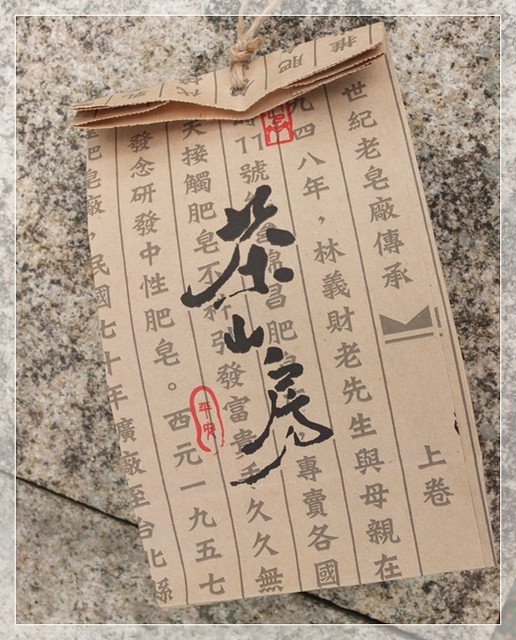 茶山房
世紀老皂廠傳承
上卷
九四八年，林義財老先生與母親在
11號
錦昌肥
專賣各國
天接觸肥皂不
發富貴手久久無
發念研發中性肥皂。西元一九五七
肥皂廠，民國七十年廣廠至台北縣
平安